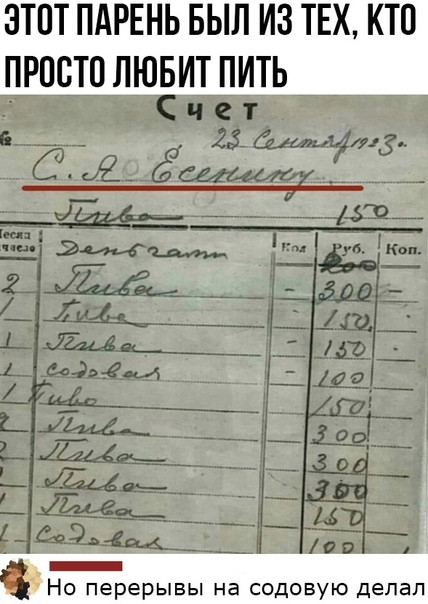 ЭТОТ ПАРЕНЬ БЫЛ ИЗ ТЕХ, КТО
ПРОСТО ЛЮБИТ ПИТЬ
Счет
№ 23 Сентя 1923.
С. А Есенину
Пиво 150
месяц число Деньгами Кол Руб. Коп.
2 Пива - 300 -
1 Пива 150
1 Пива - 150 -
1 содовая - 100
1 Пиво 150
2 Пива 300
2 Пива 300
Пива 300
Пива 150
1 Содовая 100
Но перерывы на содовую делал